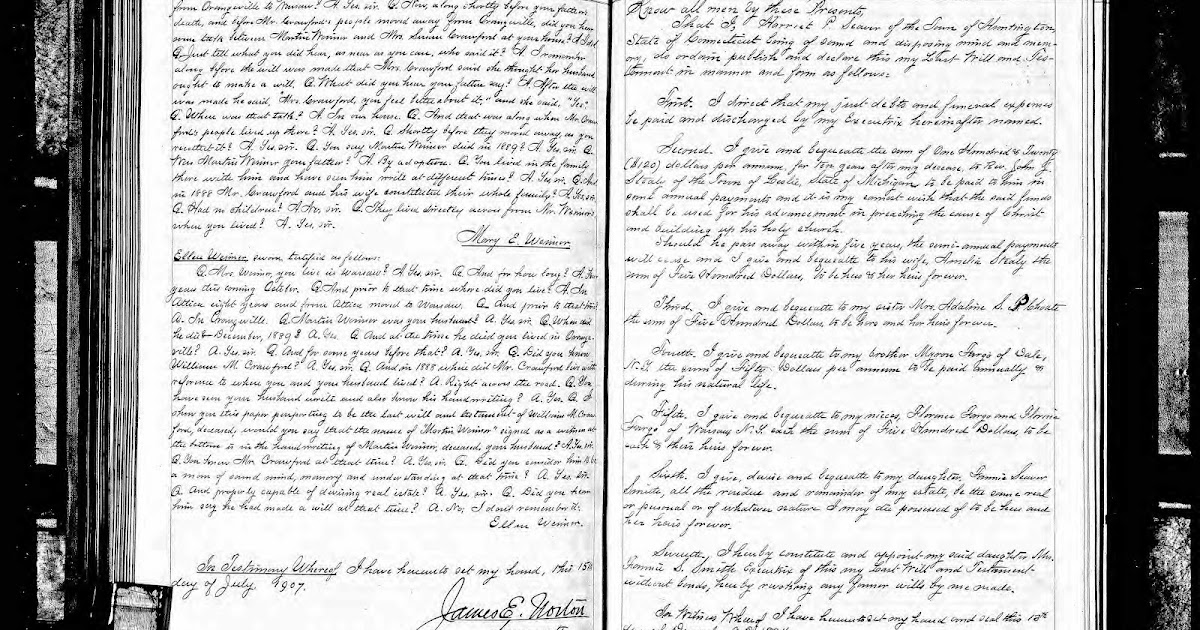 from Orangeville to Warsaw? A. Yes, sir. Q. Now, along shortly before your father's
death, and before Mr. Crawford's people moved away from Orangeville, did you hear
some talk between Martin Weimer and Mrs. Crawford at your house? A. I did.
Q. Just tell what you did hear, as near as you can, who said it? A. I remember
along before the will was made that Mrs. Crawford said she thought her husband
ought to make a will. Q. What did you hear your father say? A. After the will
was made he said, "Mrs. Crawford, you feel better about it," and she said, "Yes."
Q. Where was that talk? A. In our house. Q. And that was along when Mr. Craw-
ford's people lived up there? A. Yes, sir. Q. Shortly before they moved away, as you
recollect it? A. Yes, sir. Q. You say Martin Weimer died in 1889? A. Yes, sir. Q.
Was Martin Weimer your father? A. By adoption. Q. You lived in the family
there with him and have seen him write at different times? A. Yes sir. Q. And
in 1888 Mr. Crawford and his wife constituted their whole family? A. Yes, sir.
Q. Had no children? A. No, sir. Q. They lived directly across from Mr. Weimer's
when you lived? A. Yes, sir.
Mary E. Weimer
Ellen Weimer, sworn, testified as follows:
Q. Mrs. Weimer, you live in Warsaw? A. Yes, sir. Q. And for how long? A.
years this coming October. Q. And prior to that time where did you live? A. In
Attica eight years and from Attica moved to Warsaw. Q. And prior to that time?
A. In Orangeville. Q. Martin Weimer was your husband? A. Yes sir. Q. When did
he die? December, 1889? A. Yes. Q. And at the time he died you lived in Orange-
ville? A. Yes, sir. Q. And for some years before that? A. Yes, sir. Q. Did you know
William M. Crawford? A. Yes, sir. Q. And in 1888 where did Mr. Crawford live with
reference to where you and your husband lived? A. Right across the road. Q. You
have seen your husband write and also know his handwriting? A. Yes. Q. I
show you this paper purporting to be the last will and testament of William M. Craw-
ford, deceased, would you say that the name of "Martin Weimer" signed as a witness at
the bottom is in the handwriting of Martin Weimer, deceased, your husband? A. Yes, sir.
Q. You knew Mr. Crawford at that time? A. Yes, sir. Q. Did you consider him to be
a man of sound mind, memory and understanding at that time? A. Yes, sir.
Q. And properly capable of devising real estate? A. Yes, sir. Q. Did you hear
him say he had made a will at that time? A. No, I don't remember it.
Ellen Weimer.
In Testimony Whereof, I have hereunto set my hand, this 15th
day of July, 1907.
James E. Norton
Know all men by these Presents,
That I, Harriet P. Seaver of the Town of Huntington,
State of Connecticut being of sound and disposing mind and mem-
ory, do ordain publish and declare this my Last Will and Tes-
tament in manner and form as follows:
First. I direct that my just debts and funeral expenses
be paid and discharged by my Executrix hereinafter named.
Second. I give and bequeathe the sum of One Hundred & Twenty
($120) dollars per annum, for ten years after my decease, to Rev. John G.
Staly of the Town of Leslie, State of Michigan to be paid to him in
semi annual payments and it is my earnest wish that the said funds
shall be used for his advancement in preaching the cause of Christ
and building up his holy church.
Should he pass away within five years, the semi-annual payments
will cease and I give and bequeathe to his wife, Amelia Staly the
sum of Five Hundred Dollars, to be hers & her heirs forever.
Third. I give and bequeathe to my sister Mrs. Adaline S. P. Choate
the sum of Five Hundred Dollars, to be hers and her heirs forever.
Fourth. I give and bequeathe to my brother Myron Fargo of Gale,
N.Y. the sum of Fifty Dollars per annum to be paid annually &
during his natural life.
Fifth. I give and bequeathe to my nieces, Florence Fargo and
Fargo of Warsaw N.Y. each the sum of Five Hundred Dollars, to be
each & their heirs forever.
Sixth. I give, devise and bequeathe to my daughter, Fannie Seaver
Smith, all the residue and remainder of my estate, be the same real
or personal or of whatever nature I may die possessed of to be hers and
her heirs forever.
Seventh. I hereby constitute and appoint my said daughter, Mrs.
Fannie S. Smith Executrix of this my Last Will and Testament
without bonds, hereby revoking any former wills by me made.
In Witness Whereof I have hereunto set my hand and seal this